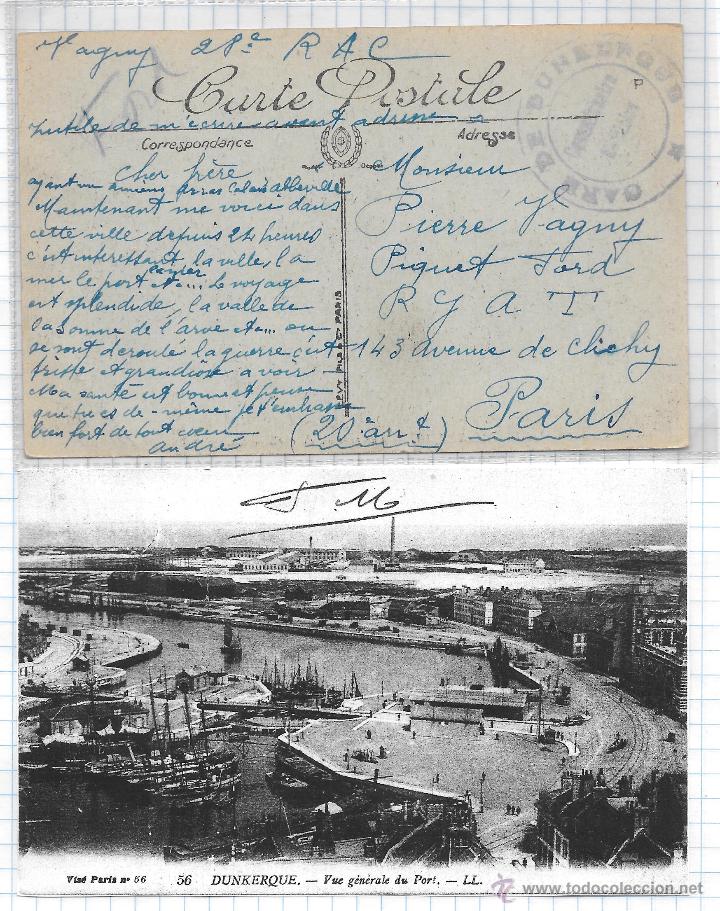 Vagny 28e R A C
Carte Postale
Inutile de m'écrire avant adresse
Correspondance
Adresse
GARE DE DUNKERQUE
P
Cher frère
ayant vu amiens arras Calais abbeville
Maintenant me voici dans
cette ville depuis 24 heures
c'est interessant, la ville, la
mer le port etc... Le voyage
est splendide, la vallée de
la Somme de l'arve etc... ou
se sont deroulé la guerre c'est
triste et grandiose a voir -
Ma santé est bonne et pense
que tu es de - même je t'embrasse
bien fort de tout coeur
andré
LEVY FILS ET Cie PARIS
Monsieur
Pierre Vagny
Piquet Ford
R G A T
143 avenue de Clichy
Paris
(20e arrt)
F M
Visé Paris no 56
56 DUNKERQUE. — Vue générale du Port. — LL.
www.todocoleccion.net